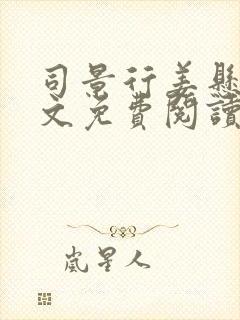 司景行姜懸
文免費閱讀
嵐星人